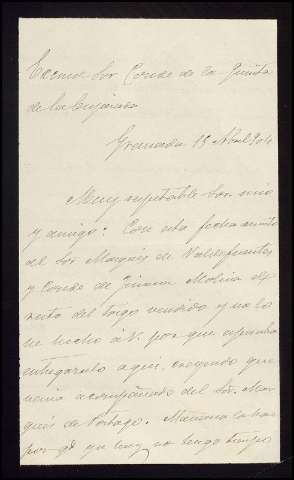 Excmo Sor Conde de la Quinta
de la Enjarada
Granada 15 Abril 904
Muy respetable Sor mio
y amigo: Con esta fecha remito
al Sor Marqués de Valdefuentes
y Conde de Molina el
resto del trigo vendido y no lo
he hecho á V. por que
entregarlo aqui, creyendo que
venia acompañado del Sr. Mar
qués de Portago. Mañana lo ha
por qe hoy no tengo tiempo